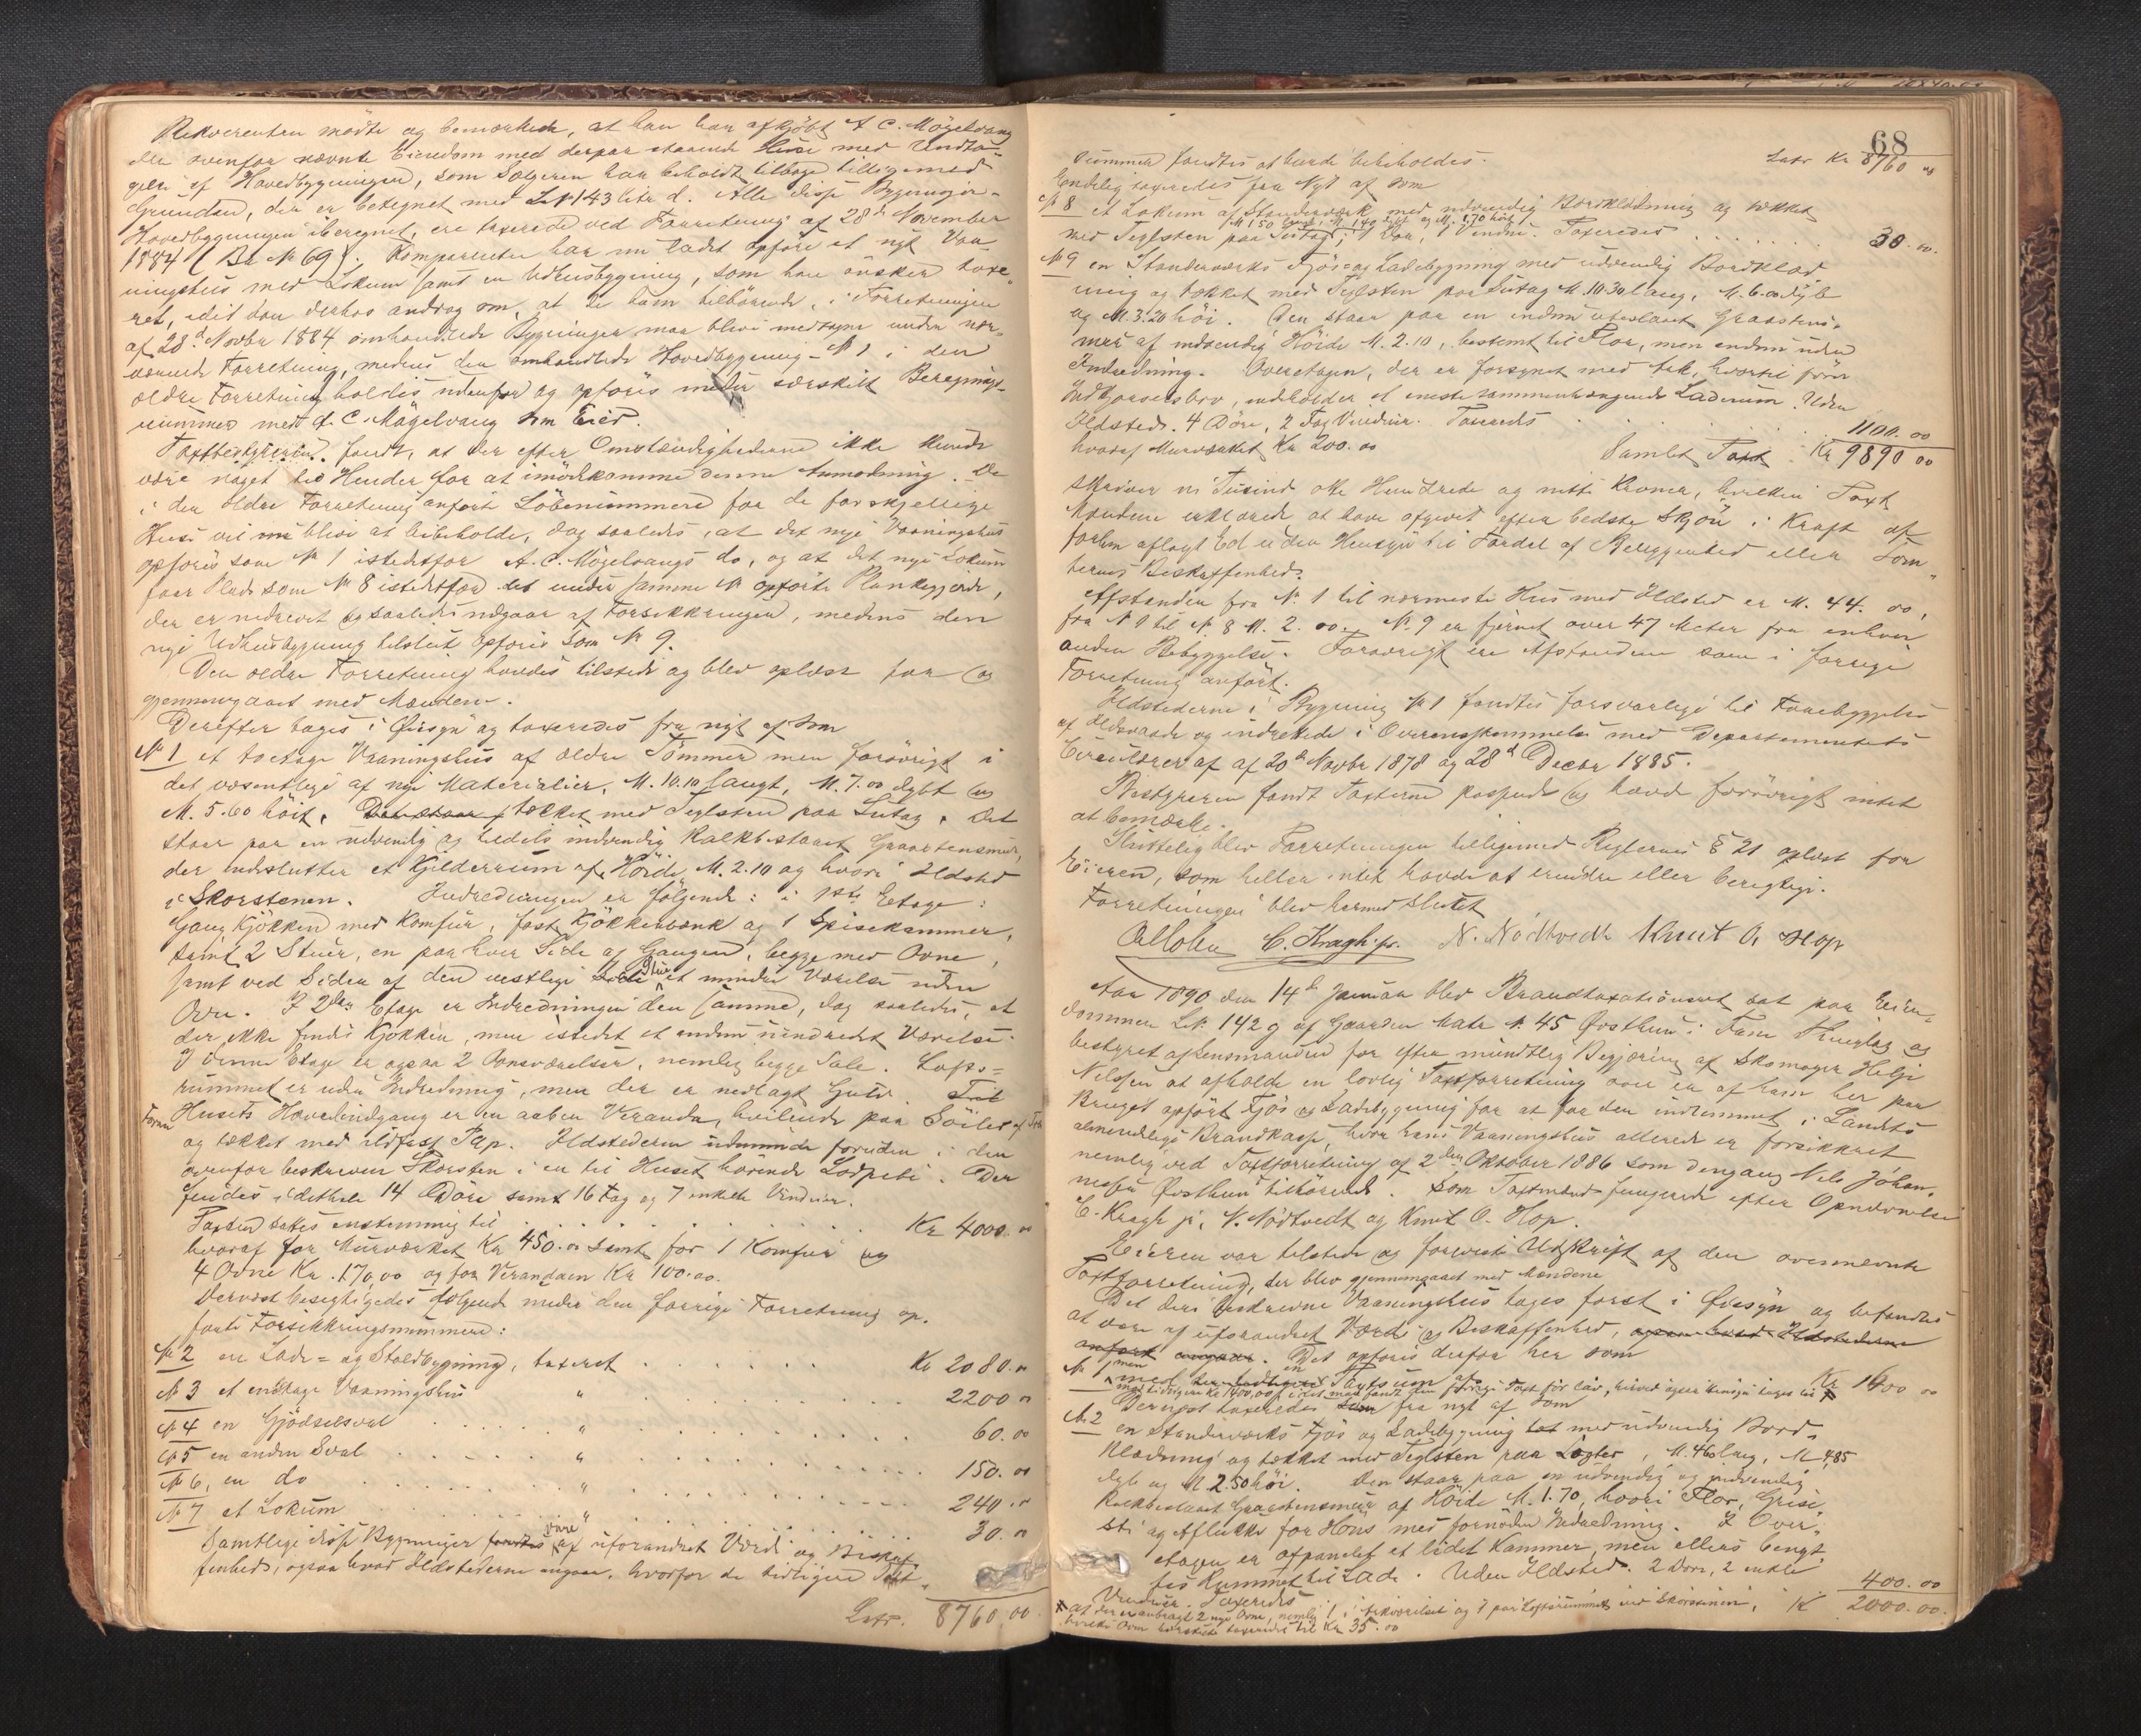 Rekvirenten mødte og bemærkede, at han har afkjøbt A. C. Mögelvang
den ovenfor nævnte Eiendom med derpaa staaende Huse med Undta-
gelse af Hovedbygningen, som Sælgeren har beholdt tilbage tilligemed
Grunden, der er betegnet med L.N. 143 litr. d. Alle disse Bygninger,
Hovedbygningen iberegnet, ere taxerede ved Forretning af 28de November
1884 (Br. No 69). Komparenten har nu ladet opføre et nyt Vaa-
ningshus med Lokum samt en Udhusbygning, som han ønsker taxe-
ret, idet han derhos androg om, at de ham tilhørende, i Forretningen
af 28d Novbr 1884 omhandlede Bygninger maa blive medtagne under nær-
værende Forretning, medens den omhandlede Hovedbygning - No 1 i den
ældre Forretning holdes udenfor og opføres under særskilt Beregnings-
nummer med A. C. Mögelvang som Eier.
Taxtbestyreren fandt, at der efter Omstændighederne ikke kunde
være noget til Hinder for at imødekomme denne Anmodning. De
i den ældre Forretning anførte Løbenummere for de forskjellige
Huse vil blive at bibeholde, dog saaledes, at det nye Vaaningshus
opføres som No 1 istedetfor A. C. Mögelvangs do, og at det nye Lokum
faar Plads som No 8 istedetfor det under samme No opførte Plankegjerde,
der er nedrevet og saaledes udgaar af Forsikringen, medens den
nye Udhusbygning tilsidst opføres som No 9.
Den ældre Forretning havdes tilstede og blev oplæst for og
gjennemgaaet med Mændene.
Derefter toges i Øiesyn og taxeredes fra nyt af som
No 1 et toetages Vaaningshus af ældre Tømmer men forøvrigt i
det væsentlige af nye Materialier, M. 10.10 langt, M. 7.00 dybt og
M. 5.60 høit. Det staar tækket med Teglsten paa Sutag. Det
staar paa en udvendig og tildels indvendig kalkbestaaet Graastensmur,
der indslutter et Kjelderrum af Høide M. 2.10 og hvori Ildsted
i Skorstenen. Indredningen er følgende: i 1ste Etage:
Gang, Kjøkken med Komfur, fast Kjøkkenbænk og 1 Spisekammer,
samt 2 Stuer, en paa hver Side af Gangen, begge med Ovne,
samt ved Siden af den vestlige Stue et mindre Værelse uden
Ovn. I 2den Etage er Indredningen den samme, dog saaledes, at
der ikke findes Kjøkken, men istedet et andet uindredet Værelse.
I denne Etage er ogsaa 2 Ovnsværelser, nemlig begge Sale. Lofts-
rummet er uden Indredning, men der er nedlagt Gulv.
Foran Husets Hovedindgang er en aaben Veranda, hvilende paa Søiler af Træ
og tækket med ildfast Pap. Ildstederne udmunde foruden i den
ovenfor beskrevne Skorsten i en til Huset hørende Lodpibe. Der
findes i dethele 14 Døre samt 16 Fag og 7 enkelte Vinduer.
Taxten sattes enstemmig til . . . . Kr 4000.00
hvoraf for Murværket Kr 450.00 samt for 1 Komfur og
4 Ovne Kr. 170,00 og for Verandaen Kr 100.00.
Dernæst besigtigedes følgende under den forrige Forretning op-
førte Forsikkringsnummere:
No 2 en Lade- og Staldbygning, taxeret . . . . Kr 2080.00
No 3 et enetages Vaaningshus " . . . . 2200 00
No 4 en Gjødselsval " . . . . 60.00
No 5 en anden Sval " . . . . 150.00
No 6, en do " . . . . 240 00
No 7 et Lokum " . . . . 30.00
Samtlige disse Bygninger fandtes være af uforandret Værdi og Beskaf-
fenhed, ogsaa hvad Ildstederne angaar, hvorfor de tidligere Taxt-
Latr. 8760.00
68
summer fandtes at burde bibeholdes. Latr Kr 8760 00
Endelig taxeredes fra Nyt af som
No 8 et Lokum af Standerværk med udvendig Bordklædning og tækket
M 1,50 langt, M. 1,40 dybt og M. 1.70 høit
med Teglsten paa Sutag; 1 Dør, 1 Vindu. Taxeredes . . . . 30.00.
No 9 en Standerværks Fjøs og Ladebygning med udvendig Bordklæd-
ning og tækket med Teglsten paa Sutag M. 10.30 lang, M. 6.00 dyb
og M. 3.20 høi. Den staar paa en endnu ubestaaet Graastens-
mur af indvendig Høide M. 2.10, bestemt til Flor, men endnu uden
Indredning. Overetagen, der er forsynet med Tak, hvortil fører
Indkjørselsbro, indeholder et eneste sammenhængende Laderum. Uden
Ildsted. 4 Døre, 2 Fag Vinduer. Taxeredes . . . . 1100.00
hvoraf Murværket Kr 200.00 Samlet Taxt Kr 9890 00
skriver ni Tusind otte Hundrede og nitti Kroner, hvilken Taxt
Mændene erklærede at have afgivet efter bedste Skjøn i Kraft af
forhen aflagt Ed uden Hensyn til Fordel af Beliggenhed eller Tom-
ternes Beskaffenhed.
Afstanden fra No. 1 til nærmeste Hus med Ildsted er M. 44.00,
fra No 1 til No 8 M. 2.00. No. 9 er fjernet over 47 Meter fra enhver
anden Bebyggelse. Forøvrigt ere Afstandene som i forrige
Forretning anført.
Ildstederne i Bygning No 1 fandtes forsvarlige til Forebyggelse
af Ildsvaade og indrettede i Overensstemmelse med Departementets
Circulærer af af 20de Novbr 1878 og 28d Decbr 1885.
Bestyreren fandt Taxterne passende og havde forøvrigt intet
at bemærke.
Sluttelig blev Forretningen tilligemed Reglernes § 21 oplæst for
Eieren, som heller intet havde at erindre eller berigtige.
Forretningen blev hermed sluttet
C. Kragh jr. N. Nödtvedt Knut O. Hop
Aar 1890 den 14de Januar blev Brandtaxationsret sat paa Eien-
dommen L.N. 142 g af Gaarden Matr. N. 45 Øvsthun i Fane Thinglag og
bestyret af Lensmanden for efter mundtlig Begjæring af Skomager Helje
Nilssen at afholde en lovlig Taxtforretning over en af ham her paa
Bruget opført Fjøs og Ladebygning for at faa den indlemmet i Landets
almindelige Brandkasse, hvor hans Vaaningshus allerede er forsikkret
nemlig ved Taxtforretning af 2den Oktober 1886 som dengang Nils Johan-
nessen Øvsthun tilhørende. Som Taxtmænd fungerede efter Opnævnelse
C. Kragh jr, N. Nödtvedt og Knut O. Hop.
Eieren var tilstede og foreviste Udskrift af den ovennævnte
Taxtforretning, der blev gjennemgaaet med Mændene
Det deri beskrevne Vaaningshus toges først i Øiesyn og befandtes
at være af uforandret Værdi og Beskaffenhed, ogsaa hvad Ildstederne
anført angaar. Det opføres derfor her som
Kr 1600 00
Dernæst taxeredes fra nyt af som
No. 2 en Standerværks Fjøs og Ladebygning med udvendig Bord-
klædning og tækket med Teglsten paa Lægter, M. 4.60 lang, M 4,85
dyb og M. 2.50 høi. Den staar paa en udvendig og indvendig
kalkbestaaet Graastensmur af Høide M. 1.70, hvori Flor, Grise-
sti og Aflukke for Høns med fornøden Indredning. I Over-
etagen er afpanelet et lidet Kammer, men ellers benyt-
tes Rummet til Lade. Uden Ildsted. 2 Døre, 2 enkle
Vinduer. Taxeredes . . . . 400.00
Kr 2000.00.
at der er anbragt 2 nye Ovne, nemlig 1 i og 1 paa Loftsrummet ved Skorstenen,
hvilke Ovne særskilt taxeredes til Kr 35.00